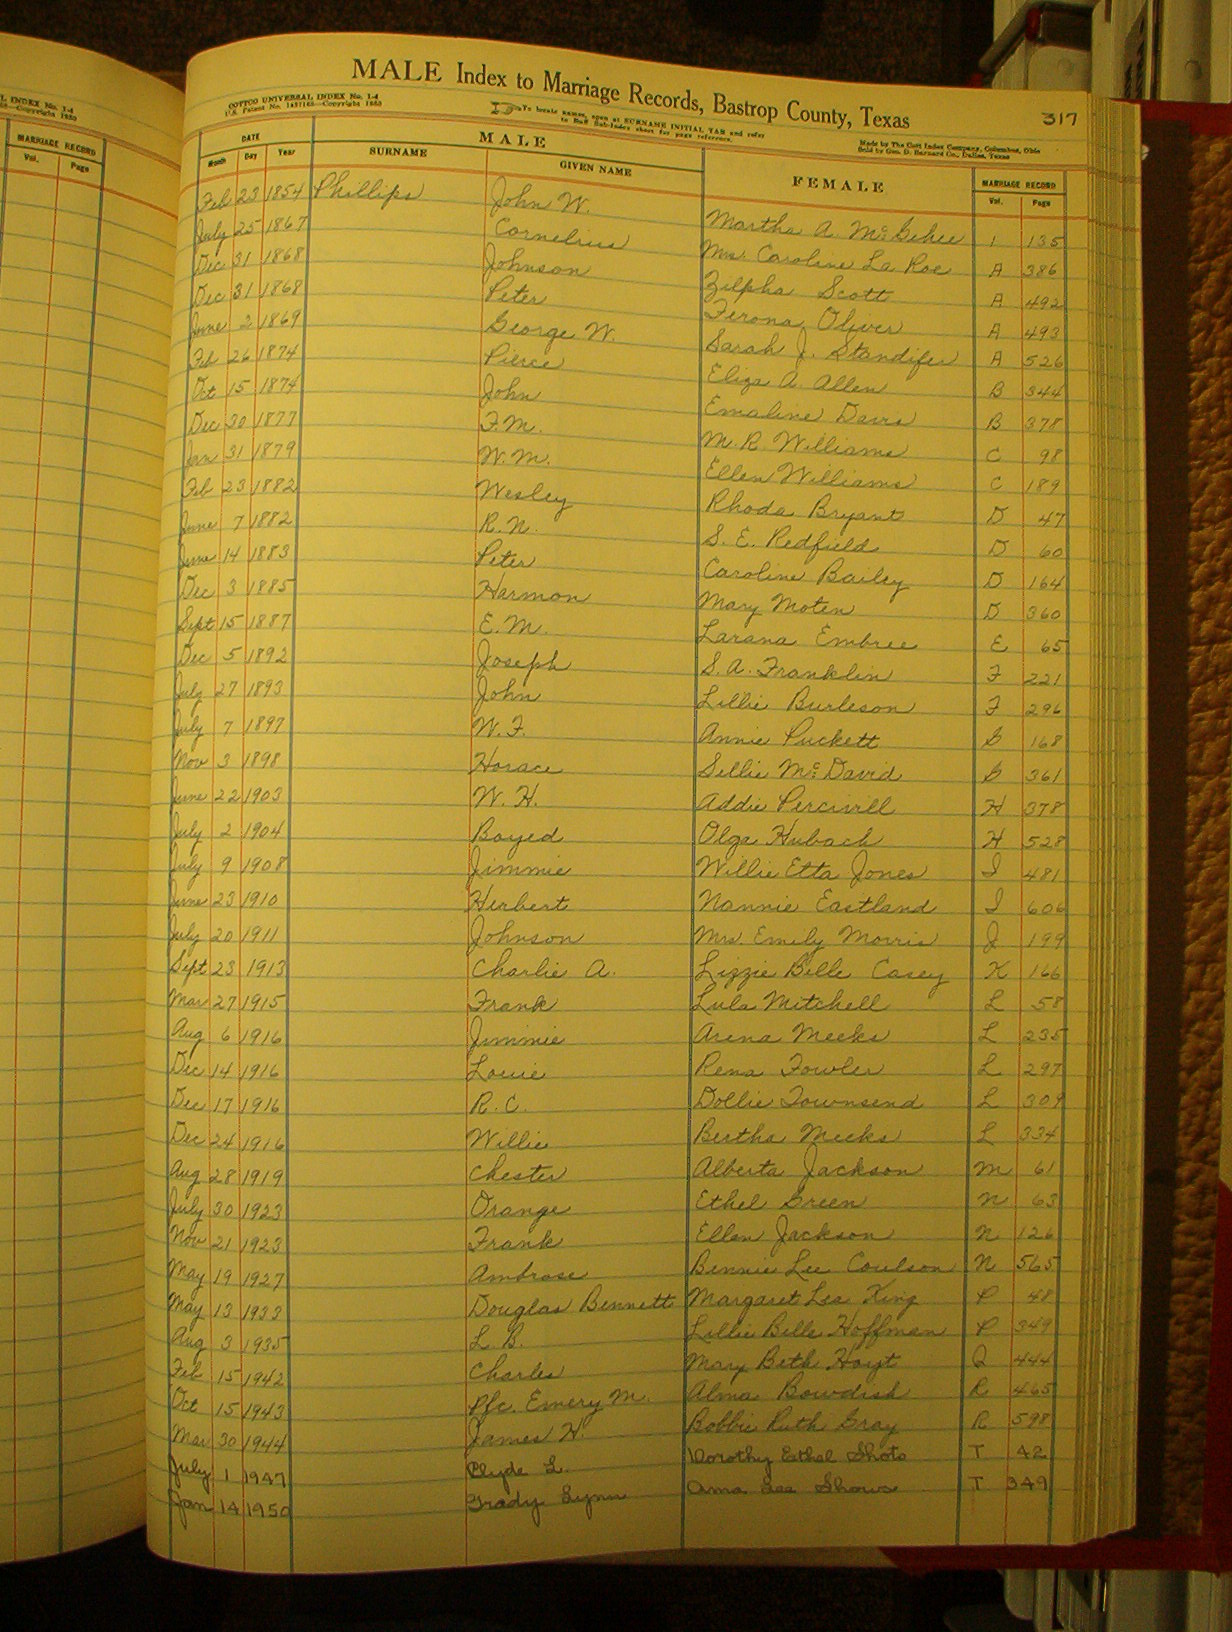 MALE Index to Marriage Records, Bastrop County, Texas 317
COTTCO UNIVERSAL INDEX No. 1-4
U.S. Patent No. 1457165—Copyright 1930
To locate names, open at SURNAME INITIAL TAB and refer
to Buff Sub-Index sheet for page reference.
Made by The Cott Index Company, Columbus, Ohio
Sold by Geo. D. Barnard Co., Dallas, Texas
L INDEX No. 1-4
—Copyright 1930
MARRIAGE RECORD
Vol. Page
DATE MALE FEMALE MARRIAGE RECORD
Month Day Year SURNAME GIVEN NAME Vol. Page
Feb 23 1854 Phillips John W. Martha A. McGehee 1 135
July 25 1867 Cornelius Mrs. Caroline La Roe A 386
Dec 31 1868 Johnson Zilpha Scott A 492
Dec 31 1868 Peter Ferona Oliver A 493
June 2 1869 George W. Sarah J. Standifer A 526
Feb 26 1874 Pierce Eliza A. Allen B 344
Oct 15 1874 John Emaline Davis B 378
Dec 30 1877 F.M. M.R. Williams C 98
Jan 31 1879 W.M. Ellen Williams C 189
Feb 23 1882 Wesley Rhoda Bryant D 47
June 7 1882 R.N. S.E. Redfield D 60
June 14 1883 Peter Caroline Bailey D 164
Dec 3 1885 Harmon Mary Moten D 360
Sept 15 1887 E.M. Larana Embree E 65
Dec 5 1892 Joseph S.A. Franklin F 221
July 27 1893 John Lillie Burleson F 296
July 7 1897 W.F. Annie Puckett G 168
Nov 3 1898 Horace Sellie McDavid G 361
June 22 1903 W.H. Addie Percivill H 378
July 2 1904 Boyed Olga Hubach H 528
July 9 1908 Jimmie Willie Etta Jones I 481
June 23 1910 Herbert Nannie Eastland I 606
July 20 1911 Johnson Mrs. Emily Morris J 199
Sept 23 1913 Charlie A. Lizzie Belle Casey K 166
Mar 27 1915 Frank Lula Mitchell L 58
Aug 6 1916 Jimmie Arena Meeks L 235
Dec 14 1916 Louie Rena Fowler L 297
Dec 17 1916 R.C. Dollie Townsend L 309
Dec 24 1916 Willie Bertha Meeks L 334
Aug 28 1919 Chester Alberta Jackson M 61
July 30 1923 Orange Ethel Green N 63
Nov 21 1923 Frank Ellen Jackson N 126
May 19 1927 Ambrose Bennie Lee Coulson N 565
May 13 1933 Douglas Bennett Margaret Lea King P 48
Aug 3 1935 L.B. Lillie Belle Hoffman P 349
Feb 15 1942 Charles Mary Beth Hoyt Q 444
Oct 15 1943 Pfc. Emery M. Alma Bowdish R 465
Mar 30 1944 James H. Bobbie Ruth Gray R 598
July 1 1947 Clyde L. Dorothy Ethel Shots T 42
Jan 14 1950 Grady Lynn Ama Lea Shows T 349